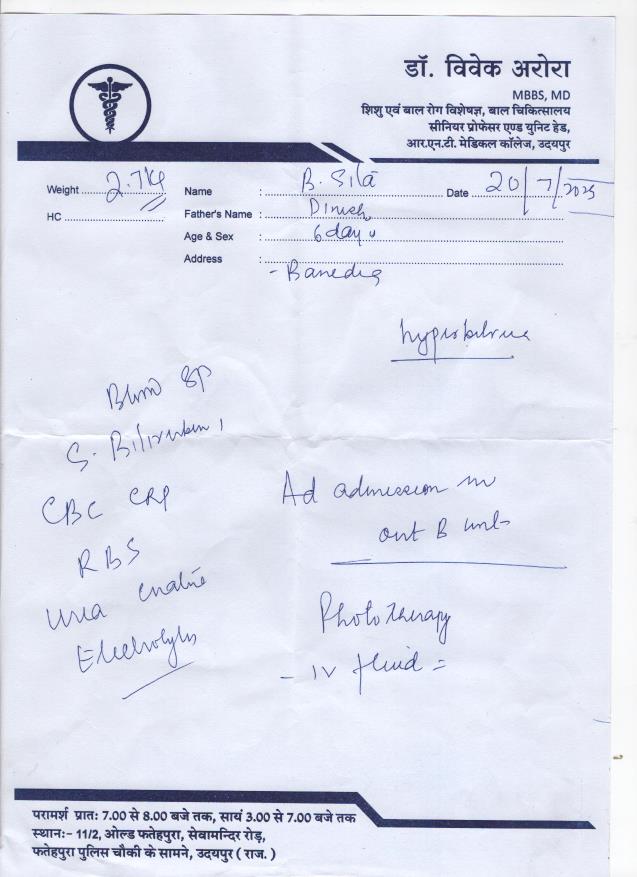 डॉ. विवेक अरोरा
MBBS, MD
शिशु एवं बाल रोग विशेषज्ञ, बाल चिकित्सालय
सीनियर प्रोफेसर एण्ड युनिट हेड,
आर.एन.टी. मेडिकल कॉलेज, उदयपुर
Weight 2.7 kg
Name : B. Sita
Date 20/7/2025
HC
Father's Name : Dinesh
Age & Sex : 6 days
Address :
hyperbilrue
S. Bilirubin
CBC CRP
RBS
Urea
Electrolytes
Ad admission in
out B unit
Phototherapy
- IV fluid =
परामर्श प्रातः 7.00 से 8.00 बजे तक, सायं 3.00 से 7.00 बजे तक
स्थानः- 11/2, ओल्ड फतेहपुरा, सेवामन्दिर रोड़,
फतेहपुरा पुलिस चौकी के सामने, उदयपुर ( राज. )